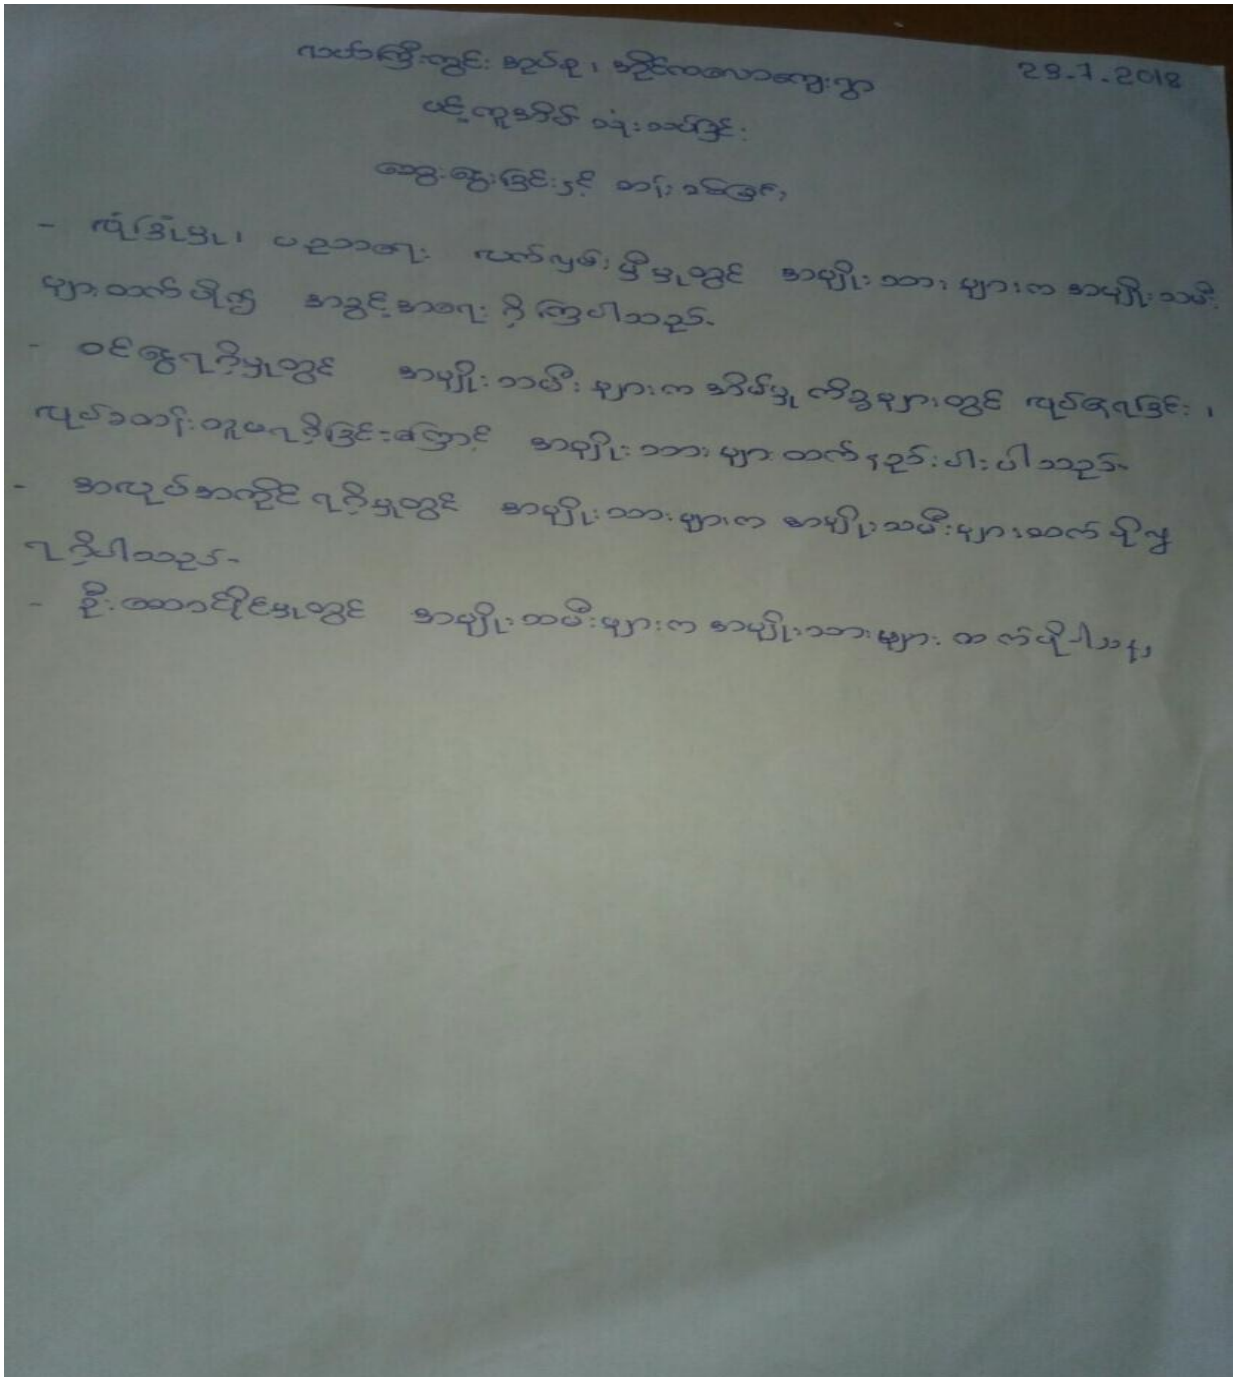 လယ်ကြီးကွင်း အုပ်စု၊ အိုင်ကလောကျေးရွာ 29.7.2018
ပင့်ကူအိမ် သုံးသပ်ခြင်း
ဆွေးနွေးခြင်းနှင့်
- လုံခြုံမှု၊ ပညာရေး လက်လှမ်းမှီမှုတွင် အမျိုးသားများက အမျိုးသမီး
များထက်ပို၍ အခွင့်အရေး ရှိကြပါသည်-
- ဝင်ငွေရရှိမှုတွင် အမျိုးသမီးများက အိမ်မှုကိစ္စများတွင် လုပ်နေရခြင်း၊
လုပ်ခတန်းတူမရရှိခြင်းကြောင့် အမျိုးသားများထက်နည်းပါးပါသည်-
- အလုပ်အကိုင်ရရှိမှုတွင် အမျိုးသားများက အမျိုးသမီးများထက် ပိုမို
ရရှိပါသည်-
- ဦးဆောင်နိုင်မှုတွင် အမျိုးသမီးများက အမျိုးသားများ ထက်ပိုပါသည်